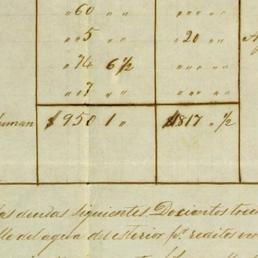 " 60 " "
" 5 " " " 20 " "
" 74 6 1/2 " " "
" 7 " " " "
suman $ 950 1 " $ 1817 " 1/2
las deudas siguientes Docientos trec
lle del agua del esterior pr. reditos ven